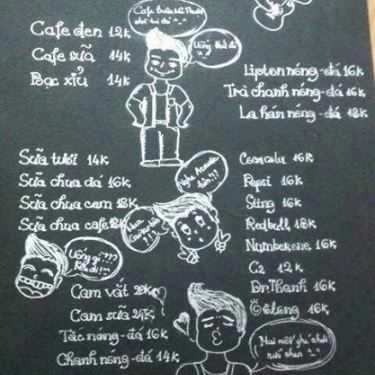 Cafe đen 12k
Cafe sữa 14k
Bạc xỉu 14k
Cafe Buôn Mê Thuột
Uống thử đi
Lipton nóng-đá 16k
Trà chanh nóng-đá 16k
La hán nóng-đá 18k
Sữa tươi 14k
Sữa chua đá 16k
Sữa chua cam 18k
Sữa chua cafe 18k
Nghe
Cocacola 16k
Pepsi 16k
Sting 16k
Redbull 18k
Number one 16k
C2 12k
Dr Thanh 16k
Ôlong 16k
Uống gì???
Kêu đi!!
Cam vắt
Cam sữa 24k
Tắc nóng-đá 16k
Chanh nóng-đá 14k